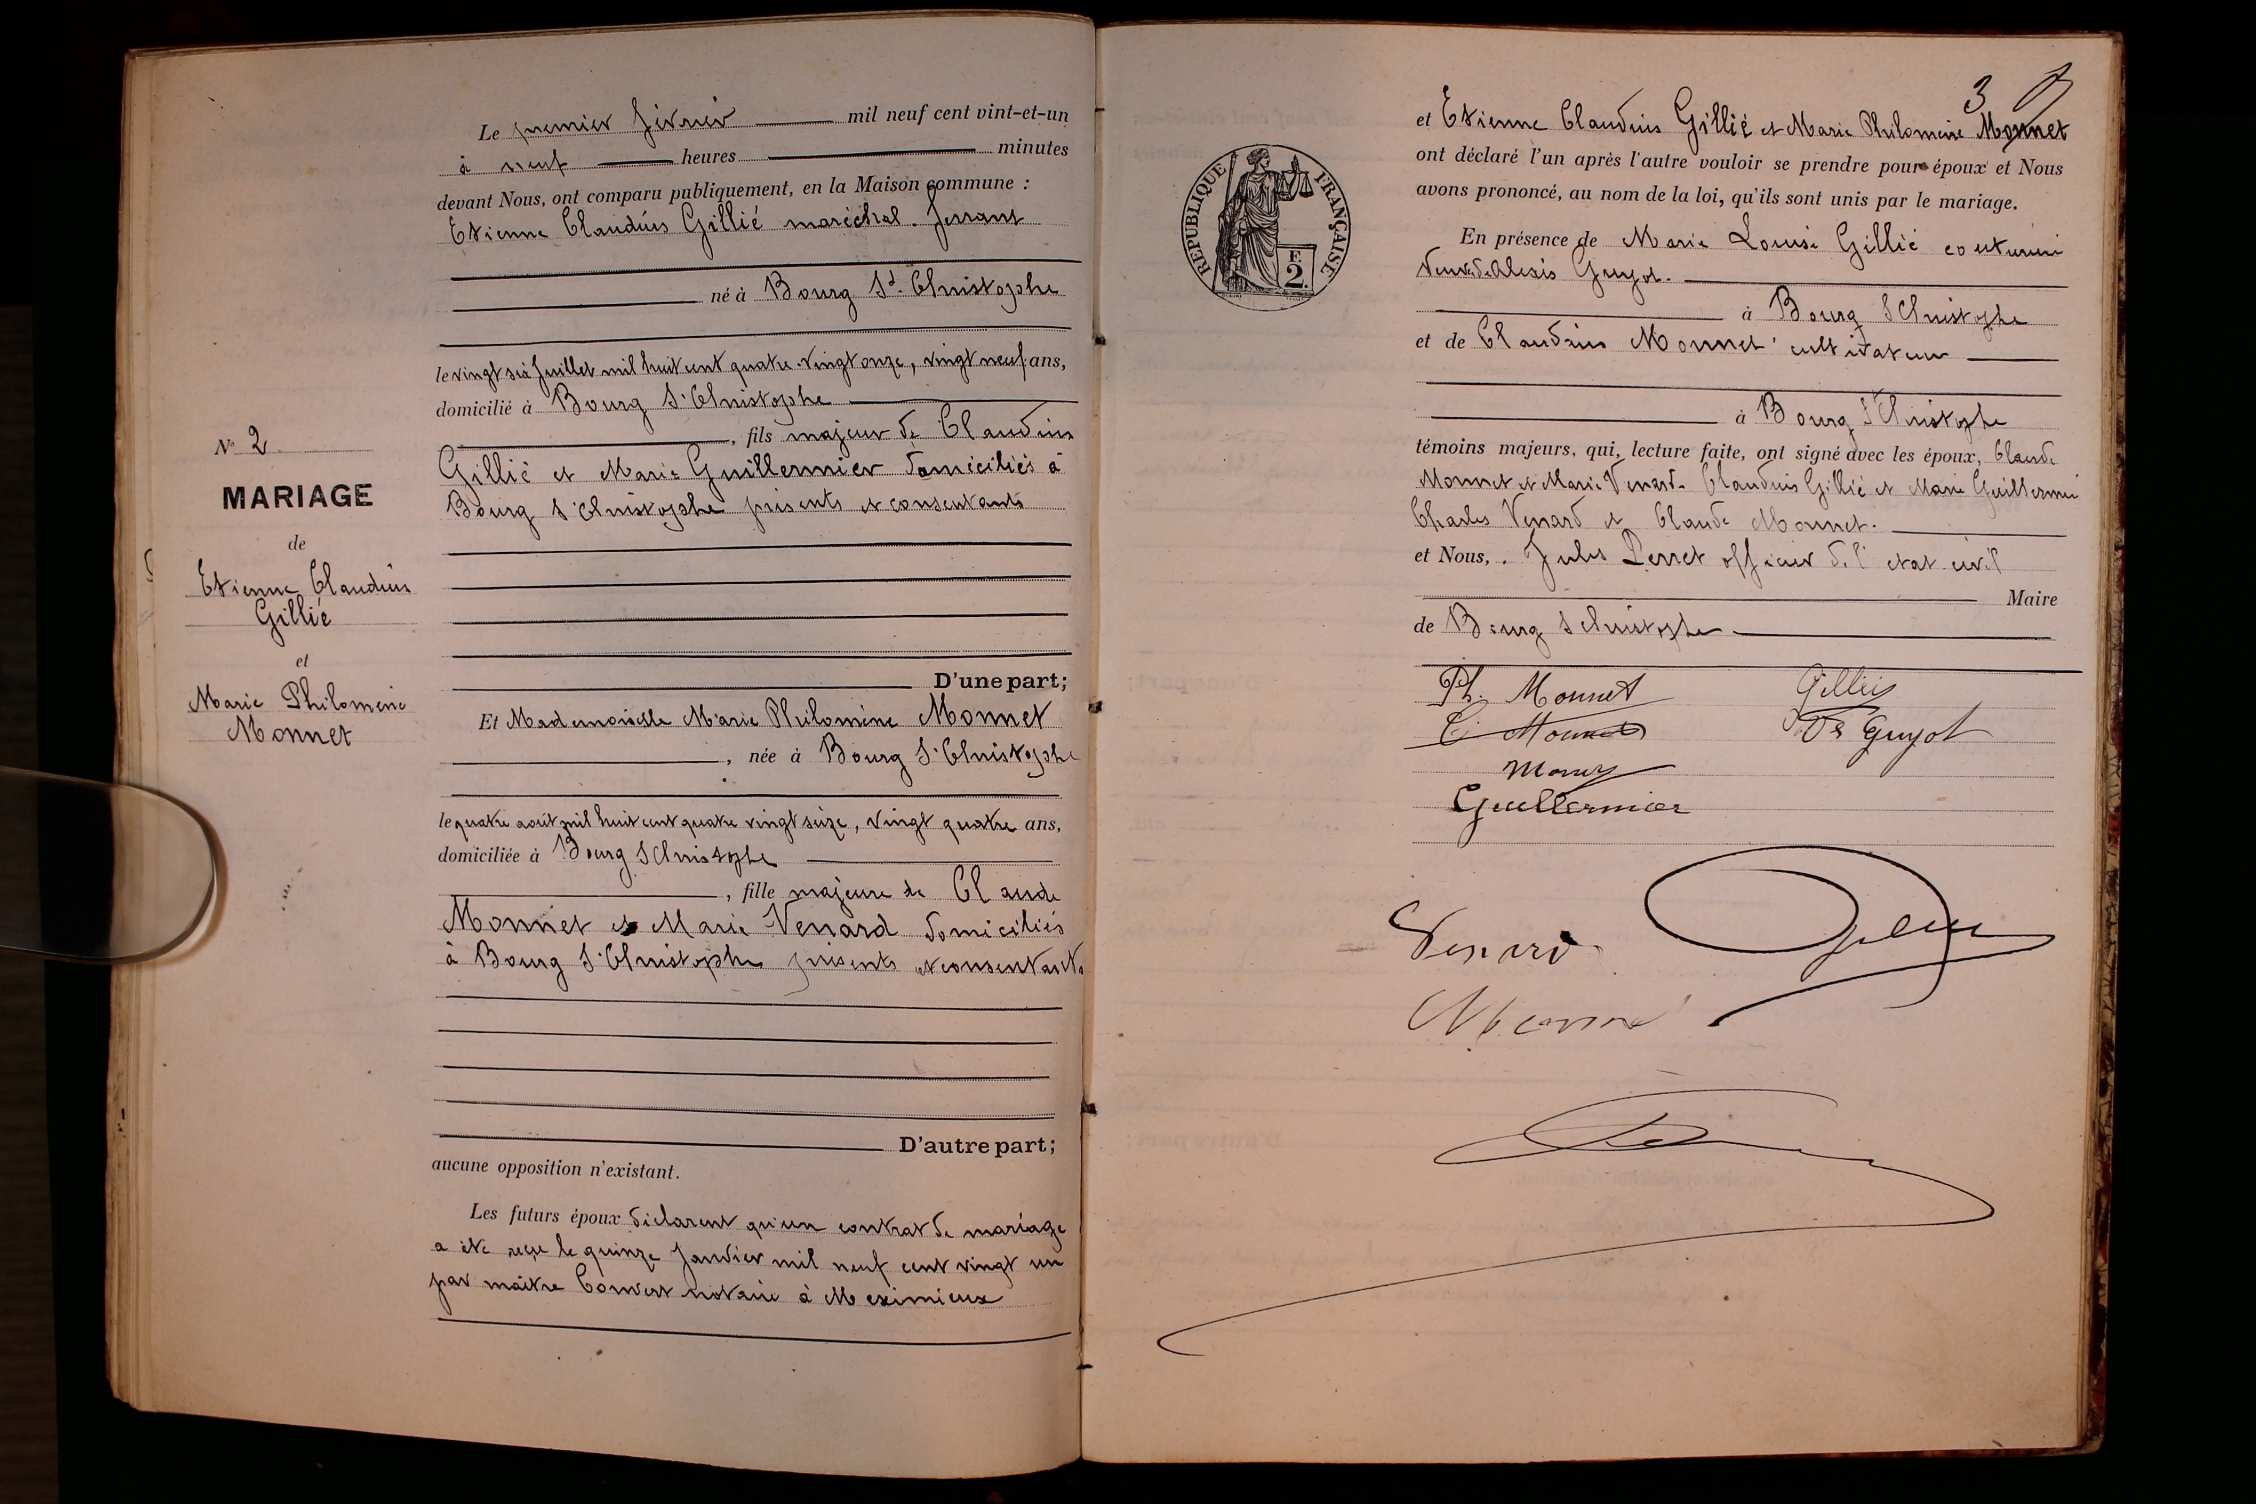 Le premier février mil neuf cent vint-et-un
à neuf heures minutes
devant Nous, ont comparu publiquement, en la Maison commune :
Etienne Claudius Gillié maréchal-ferrant
né à Bourg St Christophe
le vingt six Juillet mil huit cent quatre vingt onze, vingt neuf ans,
domicilié à Bourg St Christophe
, fils majeur de Claudius
Gillié et Marie Guillermier domiciliés à
Bourg St Christophe présents et consentants
D'une part;
Et Mademoiselle Marie Philomène Monnet
, née à Bourg St Christophe
le quatre août mil huit cent quatre vingt seize, vingt quatre ans,
domiciliée à Bourg S Christophe
, fille majeure de Claude
Monnet et Marie Venard domiciliés
à Bourg St Christophe présents et consentants
D'autre part;
aucune opposition n'existant.
Les futurs époux déclarent qu'un contrat de mariage
a été reçu le quinze Janvier mil neuf cent vingt un
par maître Convert notaire à Meximieux
No 2
MARIAGE
de
Etienne Claudius
Gillié
et
Marie Philomène
Monnet
3
et Etienne Claudius Gillié et Marie Philomène Monnet
ont déclaré l'un après l'autre vouloir se prendre pour époux et Nous
avons prononcé, au nom de la loi, qu'ils sont unis par le mariage.
En présence de Marie Louise Gillié
veuve de Alexis Guyot.
à Bourg S Christophe
et de Claudius Monnet cultivateur
à Bourg St Christophe
témoins majeurs, qui, lecture faite, ont signé avec les époux, Claude
Monnet et Marie Venard Claudius Gillié et Marie Guillermier
Charles Venard et Claude Monnet.
et Nous, Jules Perret officier de l'etat civil
Maire
de Bourg S Christophe
RÉPUBLIQUE FRANÇAISE
F.
2.
Ph. Monnet
Gillié
C. Monnet
Guyot
Guillermier
Venard